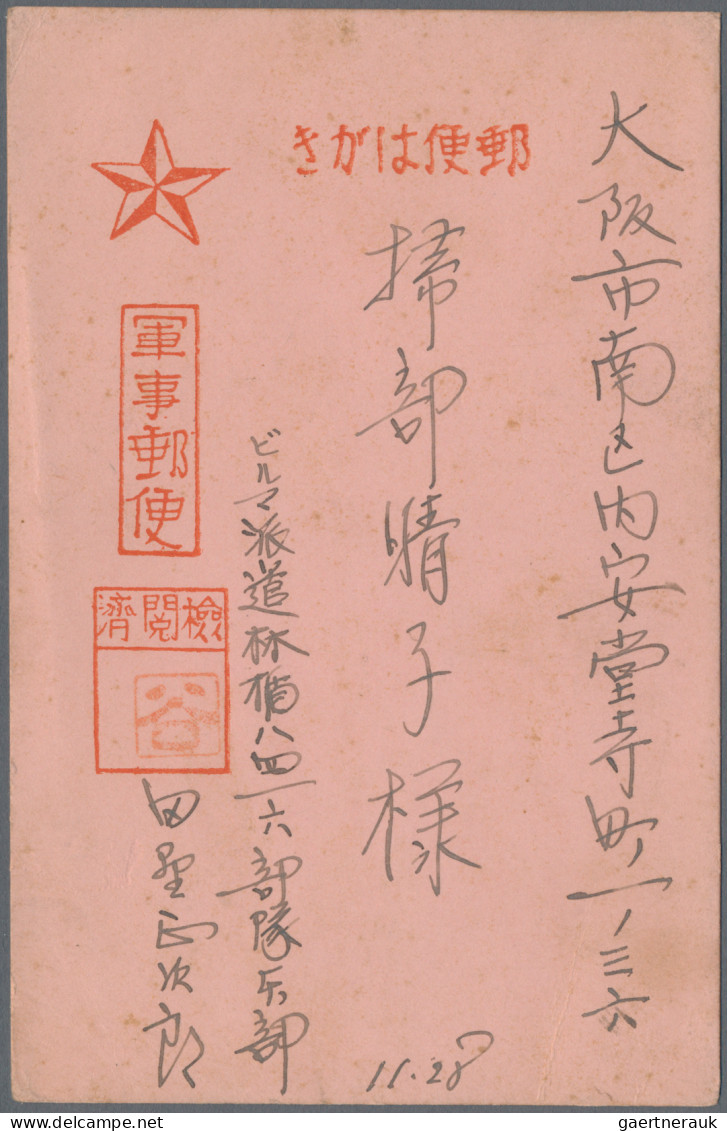 大阪市南区内安堂寺町一ノ三六
郵便はがき
掃部晴子様
軍事郵便
検閲済
谷
ビルマ派遣林楯八四一六部隊兵部
田野正次郎
11.28
delcampe.net
gaertnerauk